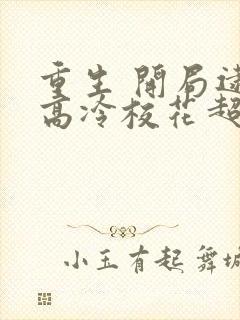 重生 開局逮
高冷校花超
小玉有起舞城